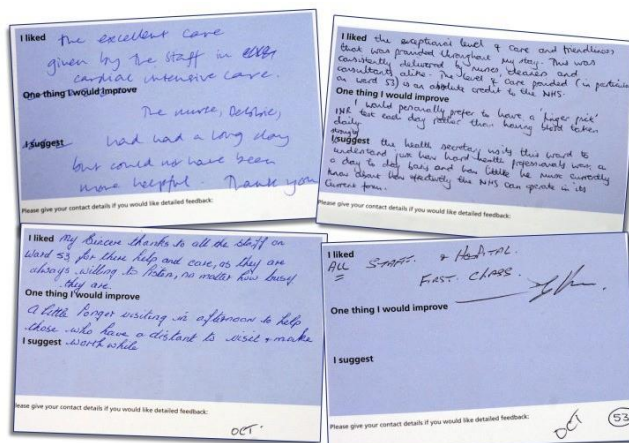 I liked the excellent care
given by the staff in
cardiac intensive care.
One thing I would improve
The nurse, Debbie,
I suggest had had a long day
but could not have been
more helpful. Thank you
Please give your contact details if you would like detailed feedback:
I liked the exceptional level of care and friendliness
that was provided throughout my stay. This was
consistently delivered by nurses, cleaners and
consultants alike. The level of care provided (in particular
on ward 53) is an absolute credit to the NHS.
One thing I would improve
I would personally prefer to have a 'finger prick'
INR test each day rather than having blood taken
daily
I suggest the health secretary visits this ward to
understand just how hard health professionals work on
a day to day basis and how little he must currently
know about how effectively the NHS can operate in its
current form.
Please give your contact details if you would like detailed feedback:
I liked My Sincere thanks to all the staff on
Ward 53 for there help and care, as they are
always willing to listen, no matter how busy
they are.
One thing I would improve
A little longer visiting in afternoon to help
those who have a distant to visit & make
I suggest worth while
Please give your contact details if you would like detailed feedback:
OCT.
I liked
ALL STAFF. & HOSPITAL.
FIRST. CLASS.
One thing I would improve
I suggest
Please give your contact details if you would like detailed feedback:
OCT 53